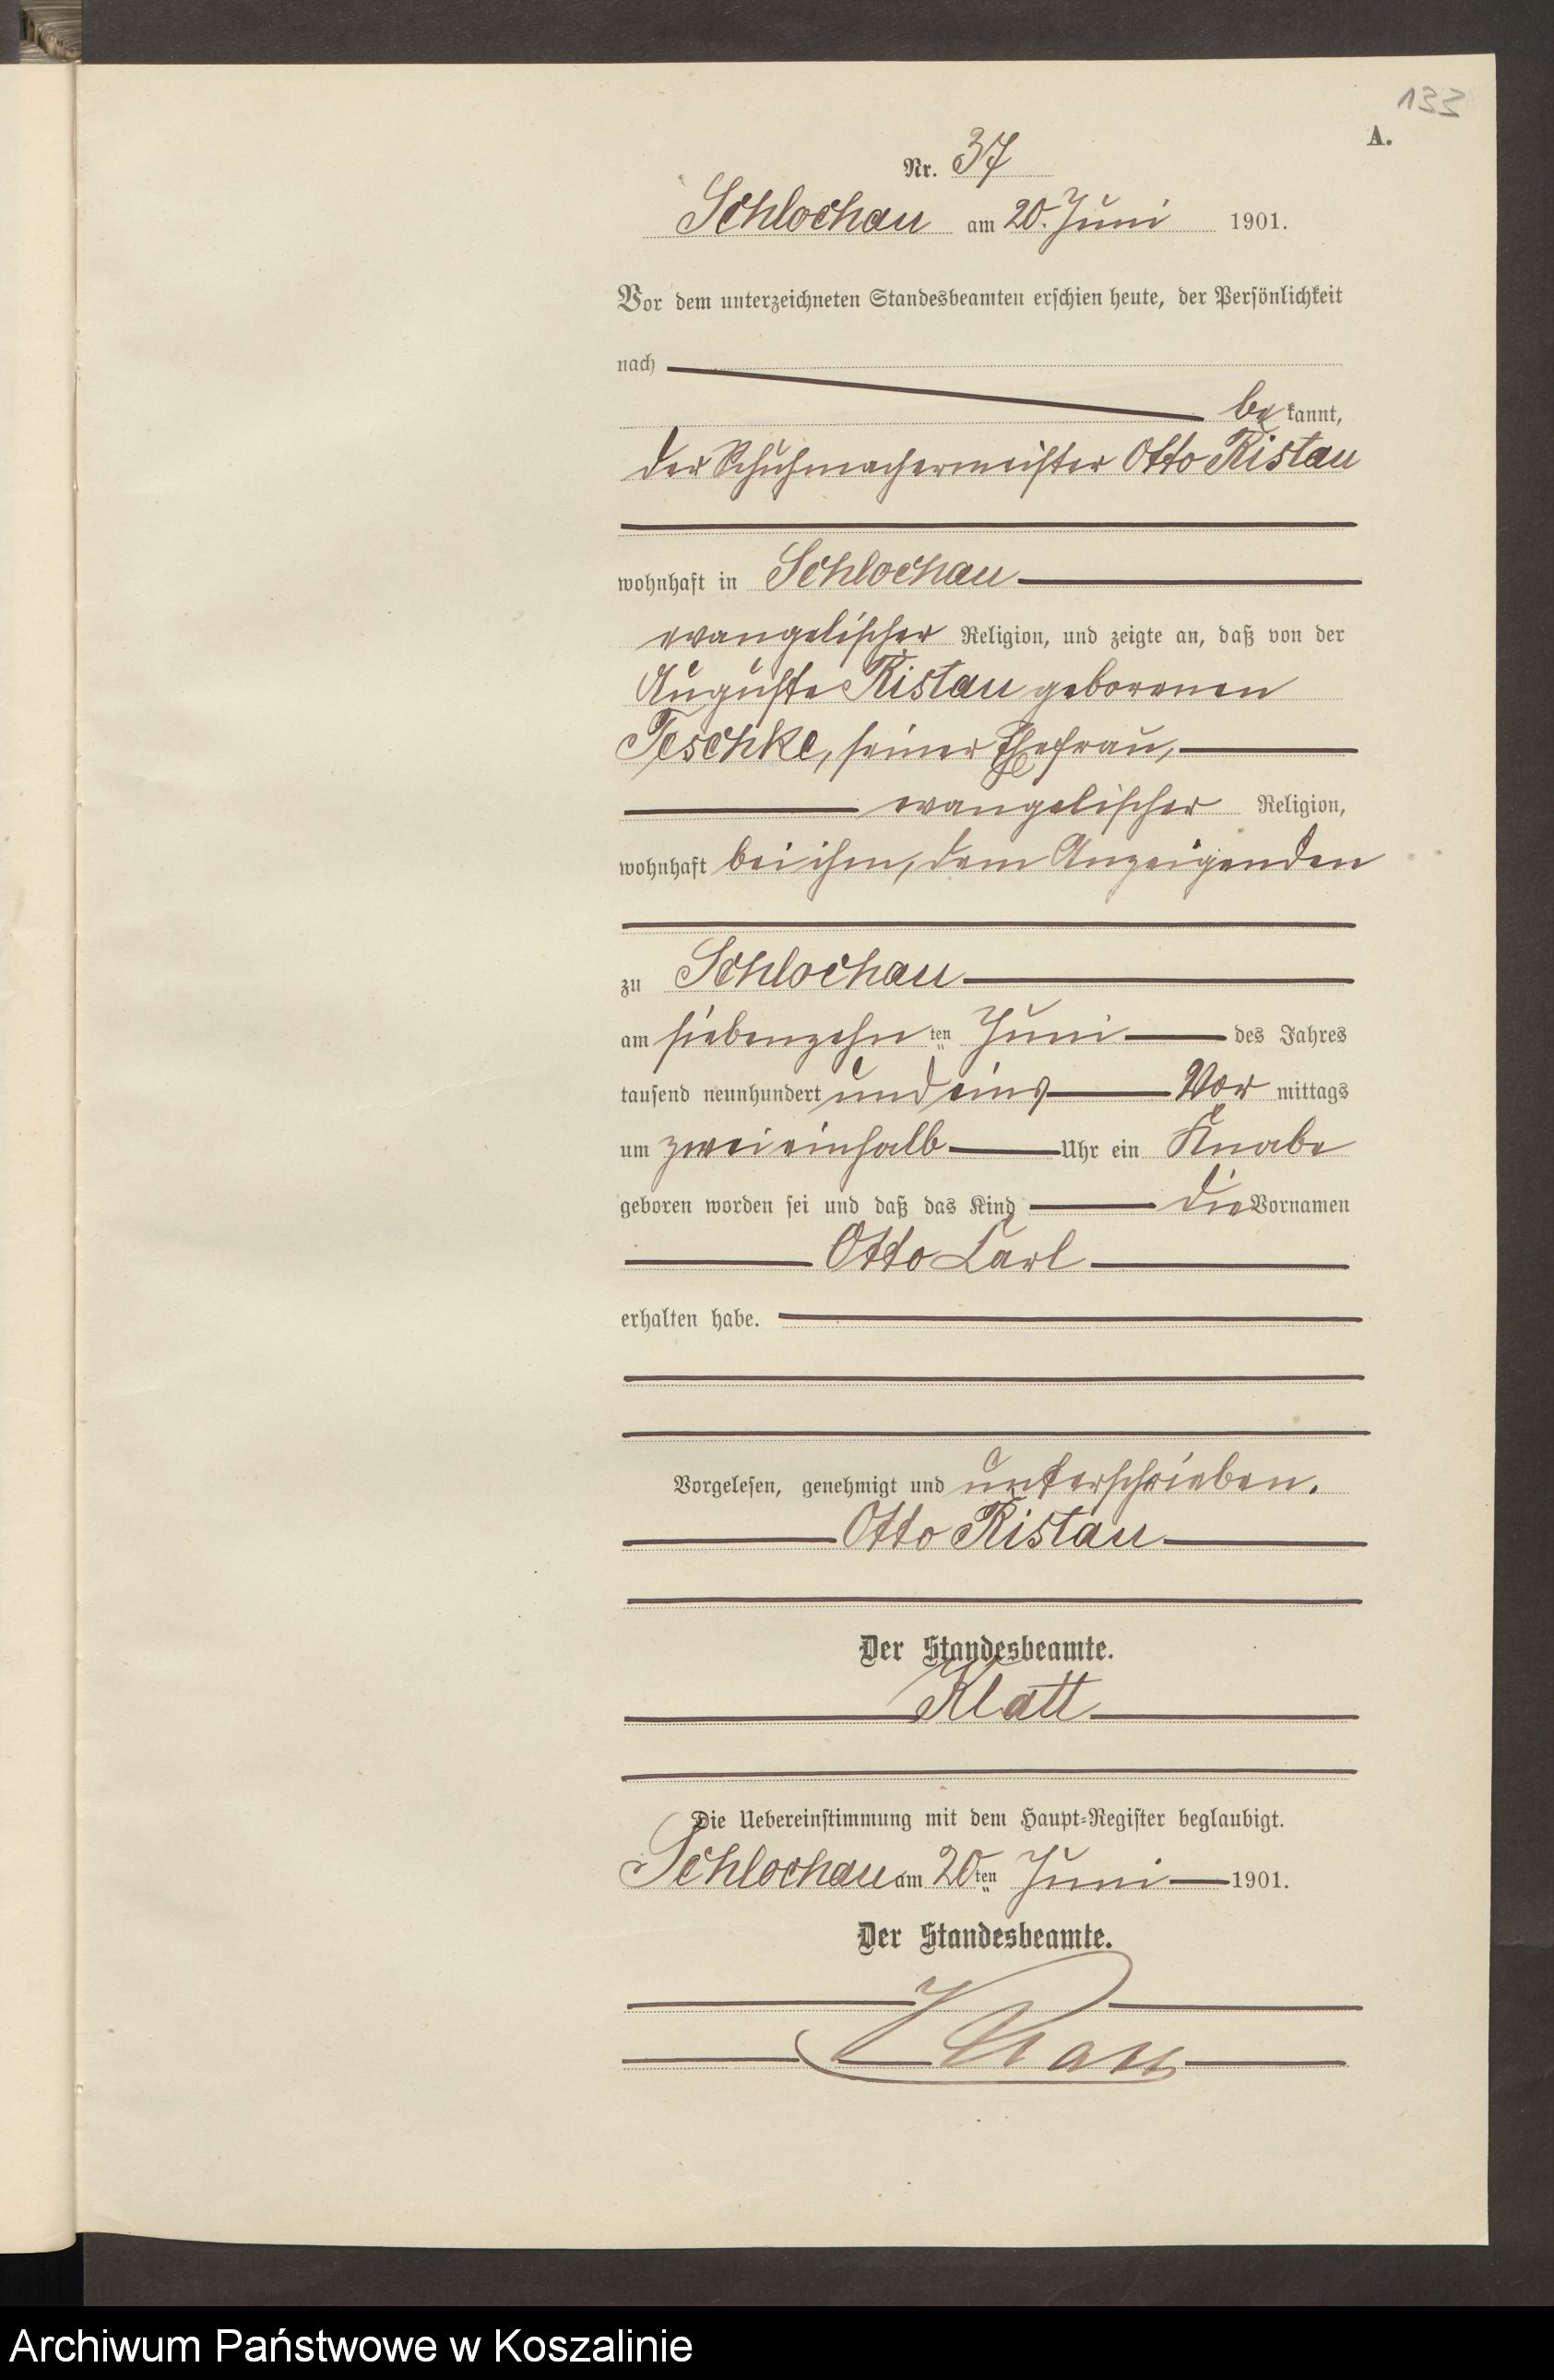 133
A.
Nr. 37
Schlochau am 20. Juni 1901.
Vor dem unterzeichneten Standesbeamten erschien heute, der Persönlichkeit
nach
be kannt,
der Schuhmachermeister Otto Ristau
wohnhaft in Schlochau
evangelischer Religion, und zeigte an, daß von der
Auguste Ristau geborenen
Teschke, seiner Ehefrau,
evangelischer Religion,
wohnhaft bei ihm, dem Anzeigenden
zu Schlochau
am siebenzehn ten Juni des Jahres
tausend neunhundert und eins Vor mittags
um zweieinhalb Uhr ein Knabe
geboren worden sei und daß das Kind die Vornamen
Otto Carl
erhalten habe.
Vorgelesen, genehmigt und unterschrieben.
Otto Ristau
Der Standesbeamte.
Klatt
Die Uebereinstimmung mit dem Haupt-Register beglaubigt.
Schlochau am 20ten Juni 1901.
Der Standesbeamte.
Klatt
Archiwum Państwowe w Koszalinie